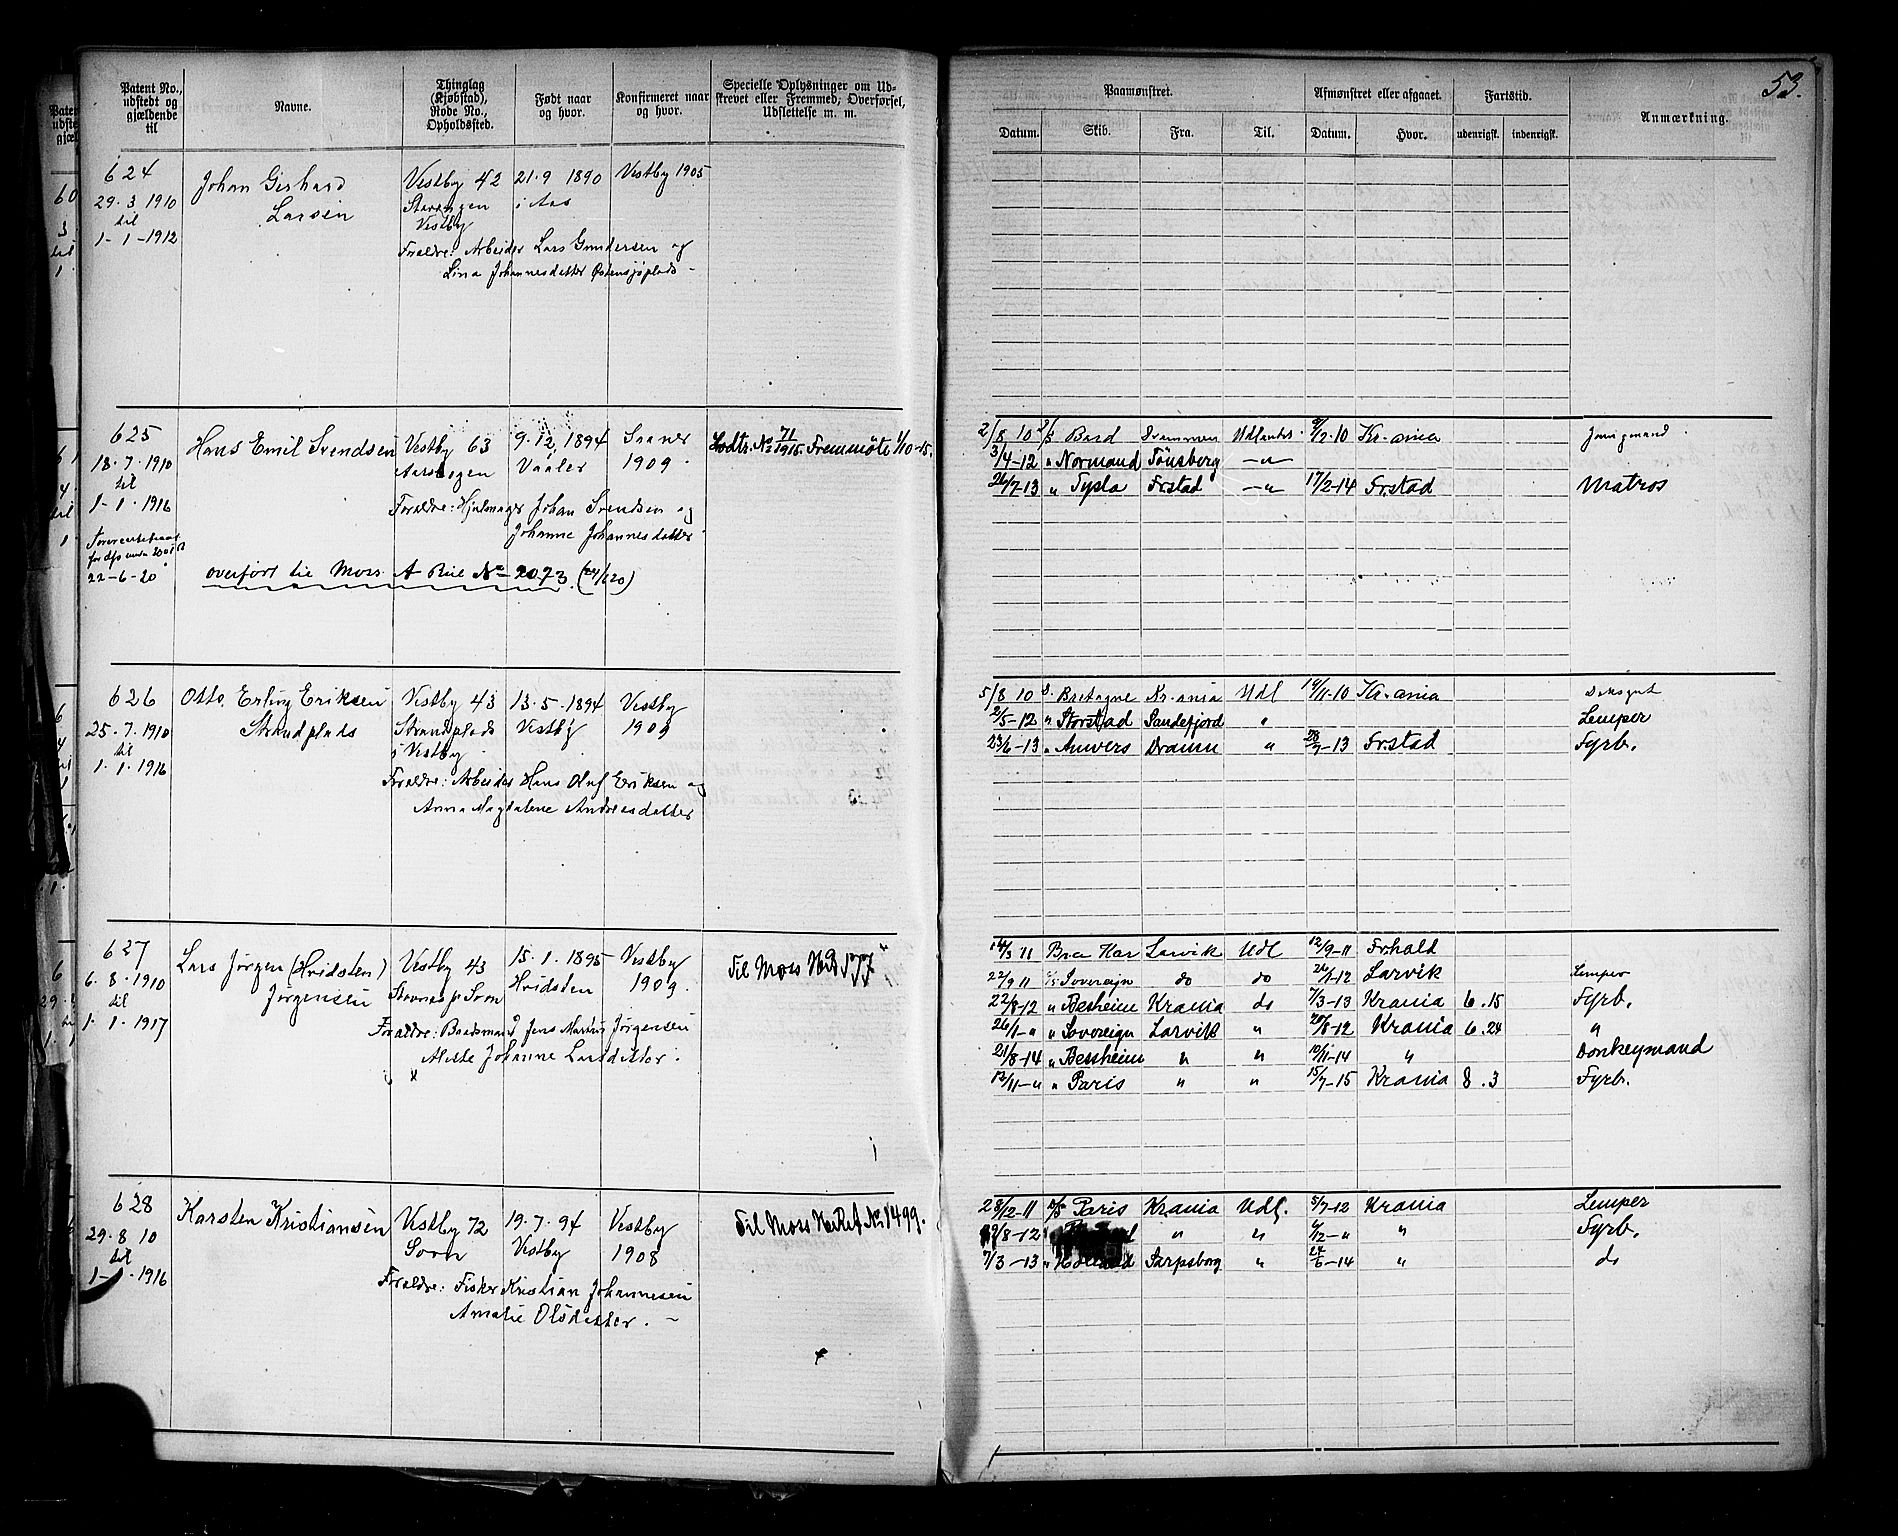 53.
Patent No., udstedt og gjældende til
Navne.
Thinglag (Kjøbstad), Rode No., Opholdssted.
Født naar og hvor.
Konfirmeret naar og hvor.
Specielle Oplysninger om Udskrevet eller Fremmed, Overførsel, Udslettelse m. m.
Paamønstret.
Afmønstret eller afgaaet.
Fartstid.
Anmærkning.
Datum. Skib. Fra. Til. Datum. Hvor. udenrigsk. indenrigsk.
624
29.3.1910
til
1-1-1912
Johan Gerhard
Larsen
Vestby 42
Vestby
21.9 1890
i Aas
Vestby 1905
Forældre: Arbeider Lars Gundersen og
Lina Johannesdatter Østensjøplads
625
18.7.1910
til
1-1.1916
22-6-20
Hans Emil Svendsen
Vestby 63
9.12.1894
Vaaler
Soner
1909.
Lodtr. No 71/1915. Fremmøte 1/10-15.
Forældre: Hjulmager Johan Svendsen og
Johanne Johannesdatter
overført til Moss A Rul No 2073. (24/6 20)
2/8 10 S/S Bard Drammen Udlandet 9/2-10 Kr.ania Jungmand
3/4-12 " Normand Tönsberg —"—
26/7-13 " Tysla Frstad —" 17/2-14 Frstad Matros
626
25.7.1910
til
1.1.1916
Otto Erling Eriksen
Strandplads
Vestby 43
Strandplads
i Vestby
13.5.1894
Vestby
Vestby
1909
Forældre: Arbeider Hans Oluf Eriksen og
Anna Magdalene Andreasdatter
5/8 10 S. Bretagne Kr.ania Udl 14/11-10 Kr.ania Dæksgut
2/5-12 " Storstad Sandefjord " Lemper
23/6-13 " Anvers Dramn " 28/7-13 Frstad Fyrb.
627
6.8.1910
til
1.1.1917
Lars Jörgen (Hvidsten)
Jørgensen
Vestby 43
Stavnes p. Sonn
15.1.1895
Hvidsten
Vestby
1909.
Til Moss
Forældre: Baadsmand Jens Martin Jørgensen
Alette Johanne Larsdatter.
14/3 11 Bra Kar Larvik Udl 12/9-11 Frhald
22/9 11 S/S Sovereign do do 26/1-12 Larvik Lemper
22/8-12 " Bessheim Krania do 7/3-13 Krania 6.15 Fyrb.
26/1-" " Sovereign Larvik " 20/8-12 Krania 6.24 "
21/8-14 " Bessheim " " 10/11-14 " Donkeymand
12/11-" " Paris " " 15/7-15 Krania 8.3 Fyrb.
628
29.8.10
til
1-1.1916
Karsten Kristiansen
Vestby 72
Sonn
19.7.94
Vestby
Vestby
1908
Til Moss No 1499.
Forældre: Fisker Kristian Johannesen
Amalie Olsdatter.
28/2-11 S/S Paris Krania Udl. 5/7-12 Krania Lemper
/8-12 " " /2-" " Fyrb.
7/3-13 " Sarpsborg " 24/6-14 " do